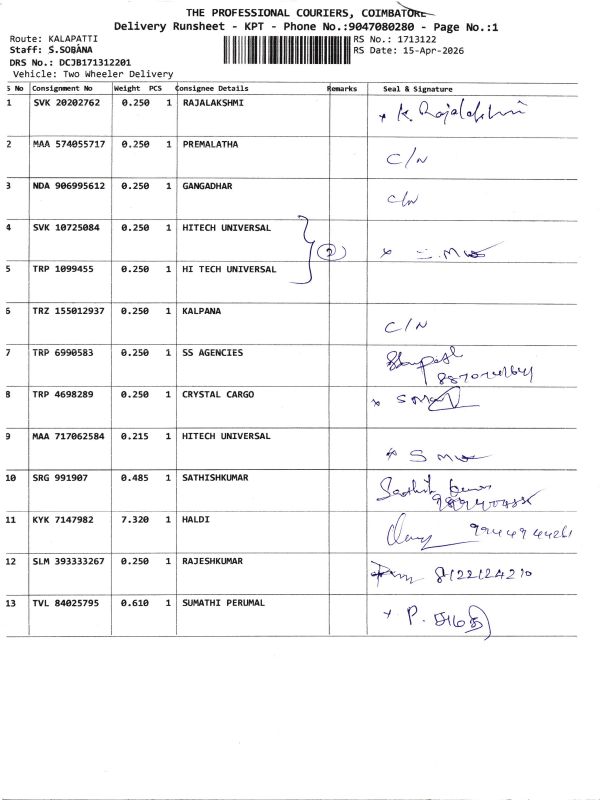 THE PROFESSIONAL COURIERS, COIMBATORE
Delivery Runsheet - KPT - Phone No.:9047080280 - Page No.:1
Route: KALAPATTI
RS No.: 1713122
Staff: S.SOBANA
RS Date: 15-Apr-2026
DRS No.: DCJB171312201
Vehicle: Two Wheeler Delivery
S No Consignment No Weight PCS Consignee Details Remarks Seal & Signature
1 SVK 20202762 0.250 1 RAJALAKSHMI K. Rajalakshmi
2 MAA 574055717 0.250 1 PREMALATHA C/N
3 NDA 906995612 0.250 1 GANGADHAR C/N
4 SVK 10725084 0.250 1 HITECH UNIVERSAL
2
5 TRP 1099455 0.250 1 HI TECH UNIVERSAL
6 TRZ 155012937 0.250 1 KALPANA C/N
7 TRP 6990583 0.250 1 SS AGENCIES
8 TRP 4698289 0.250 1 CRYSTAL CARGO
9 MAA 717062584 0.215 1 HITECH UNIVERSAL
10 SRG 991907 0.485 1 SATHISHKUMAR
11 KYK 7147982 7.320 1 HALDI 9944944261
12 SLM 393333267 0.250 1 RAJESHKUMAR 8122124210
13 TVL 84025795 0.610 1 SUMATHI PERUMAL P. சுமதி